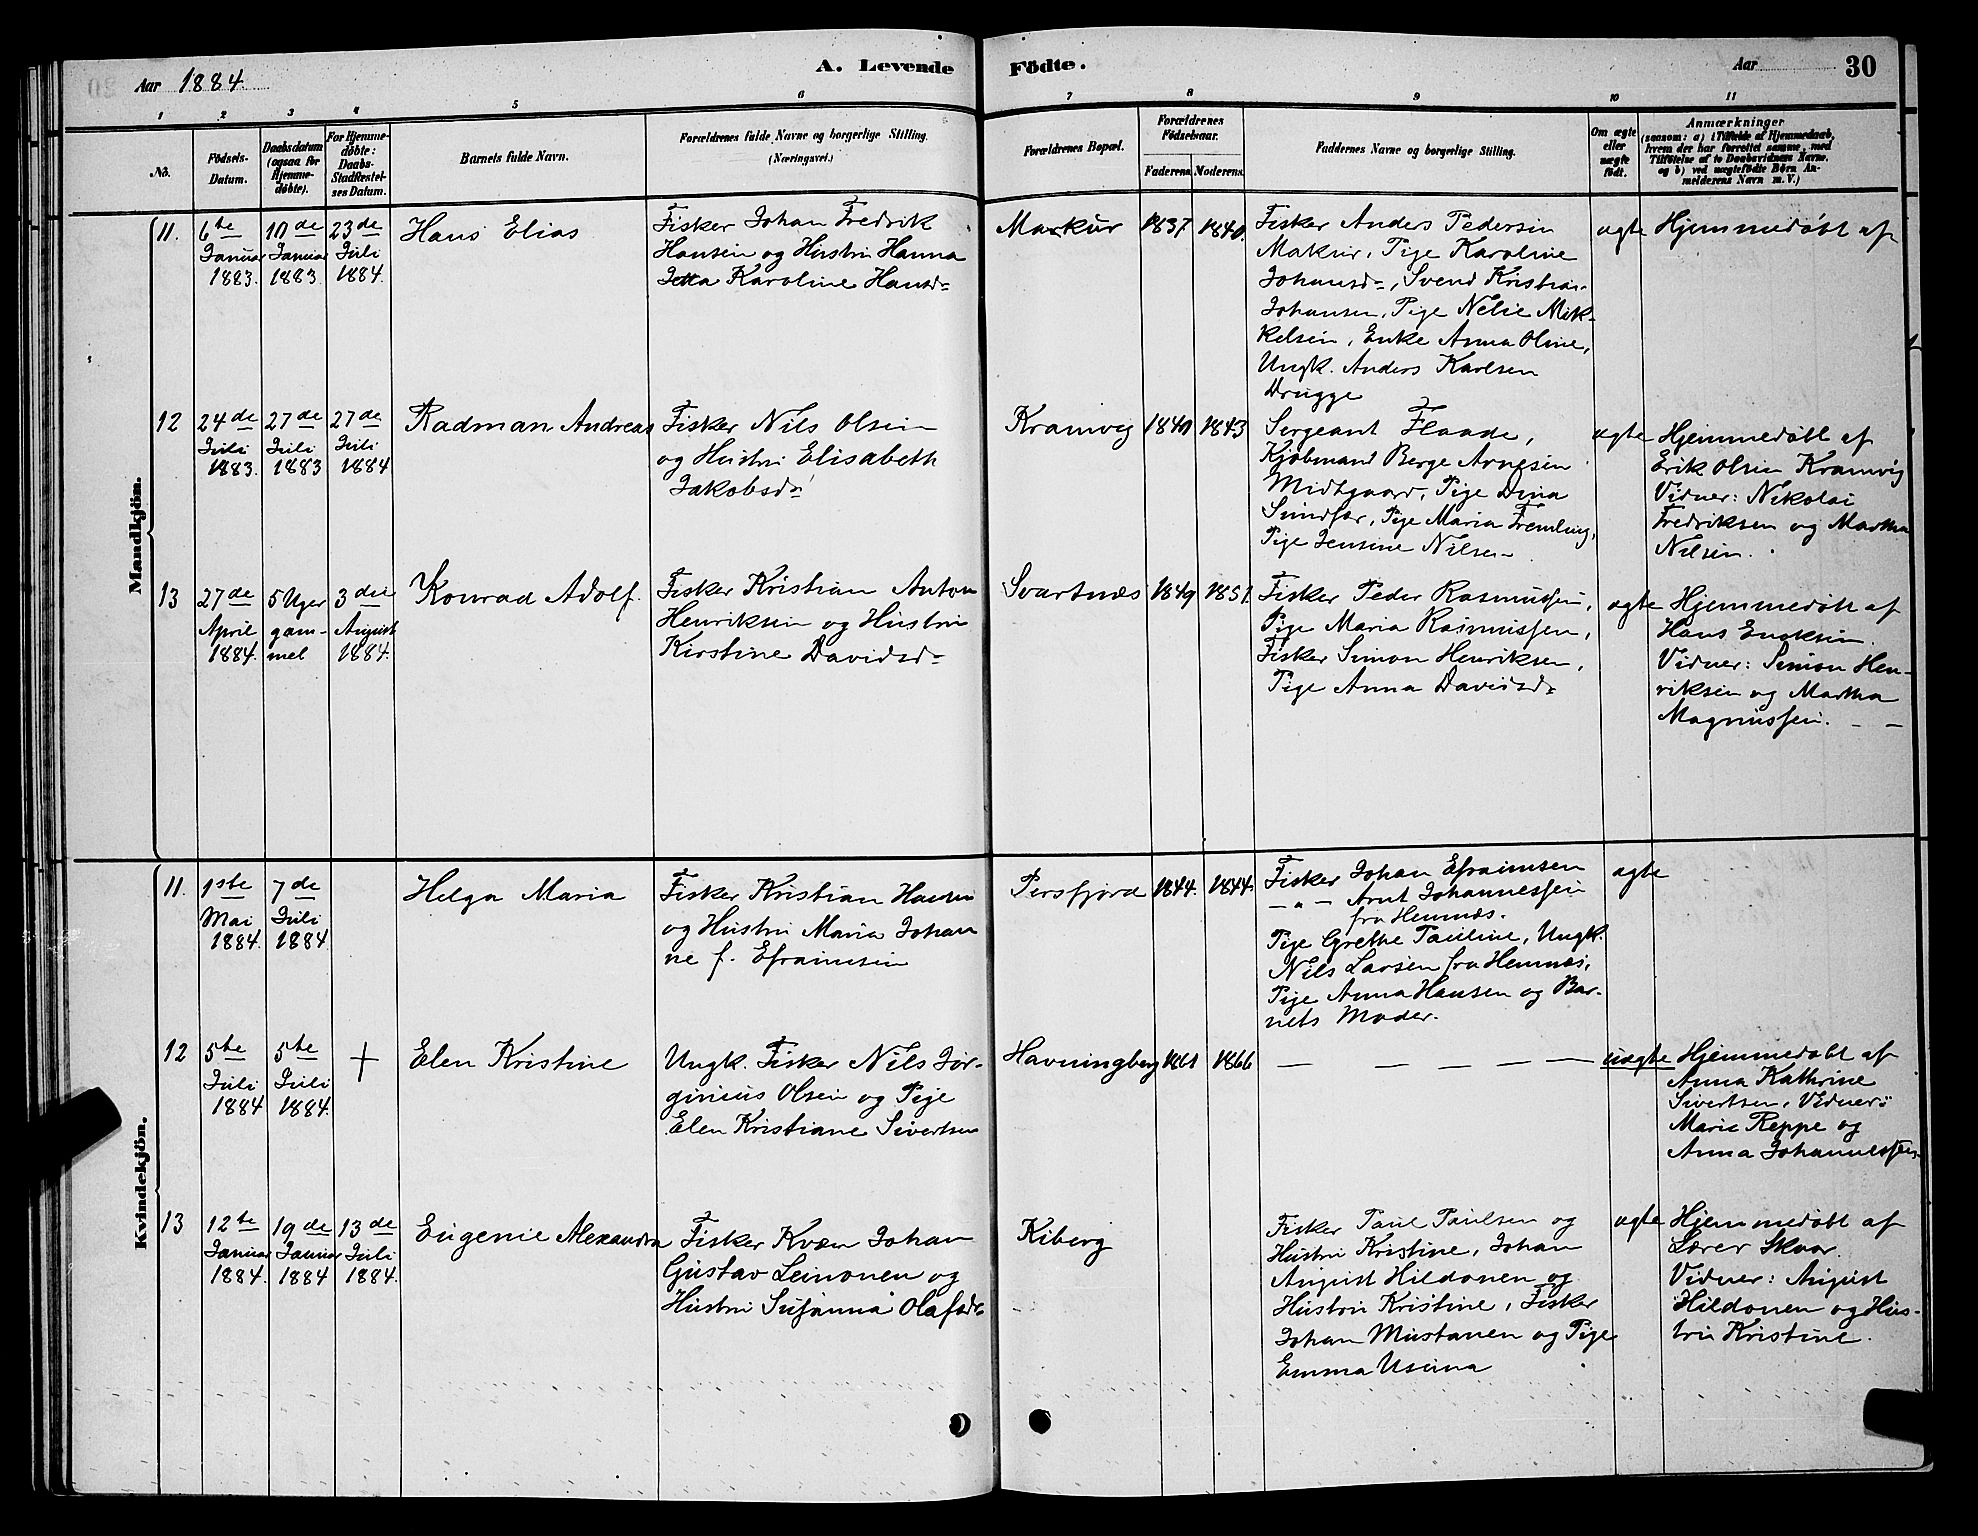 Aar 1884.
A. Levende
Födte.
Aar
30
1
2
3
4
5
6
7
8
9
10
11
No.
Födsels-
Datum.
Daabsdatum
(ogsaa for
Hjemme-
döbte).
For Hjemme-
döbte:
Daabs-
Stadfæstel-
ses Datum.
Barnets fulde Navn.
Forældrenes fulde Navne og borgerlige Stilling.
(Næringsvei.)
Forældrenes Bopæl.
Forældrenes
Födselsaar.
Faderens.
Moderens.
Faddernes Navne og borgerlige Stilling.
Om ægte
eller
uægte
födt.
Anmærkninger
(saasom: a) i Tilfælde af Hjemmedaab,
hvem der har forrettet samme, med
Tilföielse af to Daabsvidners Navne.
og b) ved uægtefödte Börn An-
melderens Navn m. V.)
Mandkjön.
11.
6te
Januar
1883.
10de
Januar
1883.
23de
Juli
1884.
Hans Elias
Fisker Johan Fredrik
Hansen og Hustru Hanna
Jetta Karoline Hansd-
Markur
1837
1840.
Fisker Anders Pedersen
Makur, Pige Karoline
Johansd-, Svend Kristian
Johansen, Pige Nelie Mik-
kelsen, Enke Anna Oline,
Ungk. Anders Karlsen
Drugge
ægte
Hjemmedöbt af
12
24de
Juli
1883.
27de
Juli
1883
27de
Juli
1884
Radman Andreas
Fisker Nils Olsen
og Hustru Elisabeth
Jakobsd-
Kramvig
1840
1843
Sergeant Flaade,
Kjöbmand Berge Arnesen
Midtgaard, Pige Dina
Sundfær, Pige Maria Fremling,
Pige Jensine Nilsen
ægte
Hjemmedöbt af
Erik Olsen Kramvig
Vidner: Nikolai
Fredriksen og Martha
Nilsen.
13
27de
April
1884.
5 Uger
gam-
mel
3die
August
1884.
Konrad Adolf.
Fisker Kristian Anton
Henriksen og Hustru
Kirstine Davidsd-
Svartnæs
1849
1851.
Fisker Peder Rasmussen,
Pige Maria Rasmussen,
Fisker Simon Henriksen,
Pige Anna Davidsd-
ægte
Hjemmedöbt af
Hans Eriksen.
Vidner: Simon Hen-
riksen og Martha
Magnussen. - -
Kvindekjön.
11.
1ste
Mai
1884.
7de
Juli
1884.
Helga Maria
Fisker Kristian Hansen
og Hustru Maria Johan
ne f. Efraimsen
Persfjord
1844.
1844.
Fisker Johan Efraimsen
- " - Arnt Johannessen
fra Hemnæs.
Pige Grethe Pauline, Ungk.
Nils Larsen fra Hemnæs,
Pige Anna Hansen og Bar-
nets Moder.
ægte
12
5te
Juli
1884
5te
Juli
1884.
+
Elen Kristine
Ungk. Fisker Nils Jör-
ginius Olsen og Pige
Elen Kristiane Sivertsen
Havningberg
1861
1866
— — — — —
uægte
Hjemmedöbt af
Anna Kathrine
Sivertsen, Vidner:
Marie Reppe og
Anna Johannessen.
13
12te
Januar
1884.
19de
Januar
1884
13de
Juli
1884.
Eugenie Alexandra
Fisker Kvæn Johan
Gustav Leinonen og
Hustru Susanna Olafsd-
Kiberg
Fisker Paul Paulsen og
Hustru Kristine, Johan
August Hildonen og
Hustru Kristine, Fisker
Johan Mustanen og Pige
Emma Useina
ægte
Hjemmedöbt af
Lærer Skaar.
Vidner: August
Hildonen og Hus-
tru Kristine.